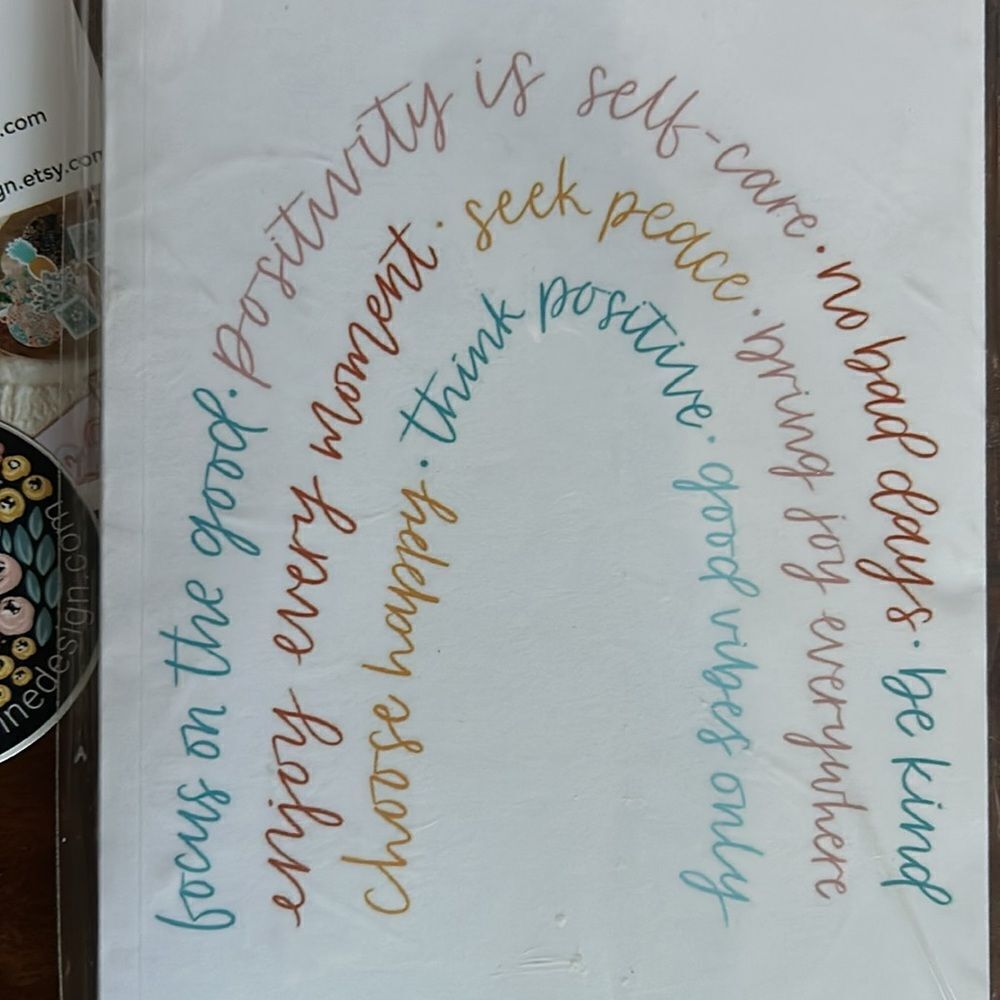 focus on the good. positivity is self-care. no bad days. be kind
enjoy every moment. seek peace. bring joy everywhere
choose happy. think positive. good vibes only
.com
gn.etsy.com
inedesign.com